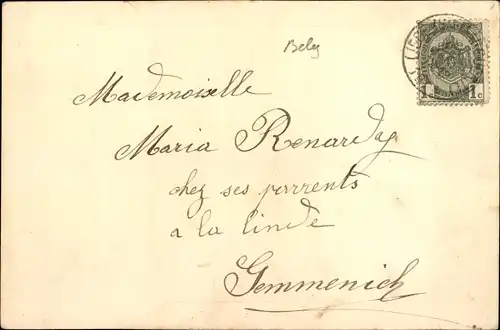 Belg
Mademoiselle
Maria Renarday
chez ses parrents
a la linde
Gemmenich
1c 1c